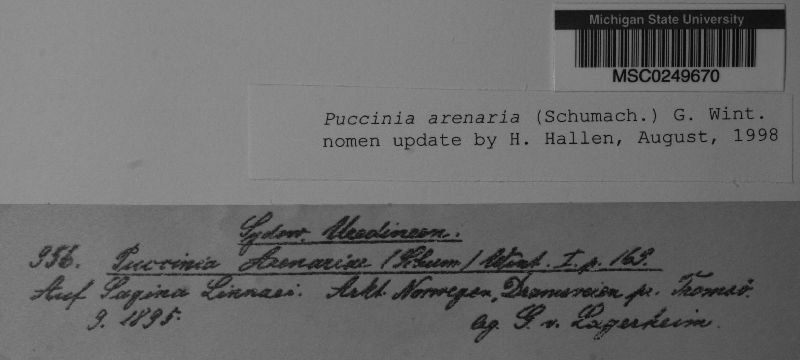 Michigan State University
MSC0249670
Puccinia arenaria (Schumach.) G. Wint.
nomen update by H. Hallen, August, 1998
Sydow. Uredineen.
956. Puccinia Arenariae (Schum) Wint. I. p. 169.
Auf Sagina Linnaei. Arkt. Norwegen, Dramsveien pr. Tromsö.
9. 1895. leg. G. v. Lagerheim.